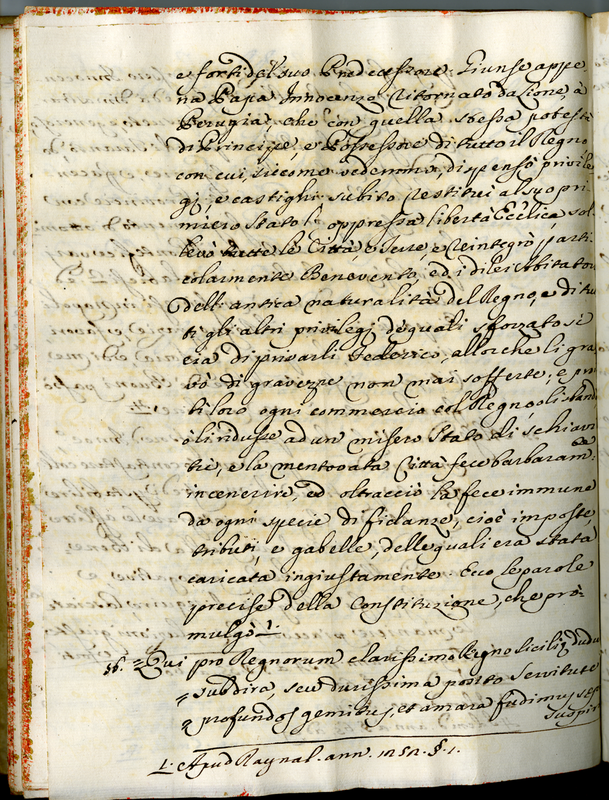 e forti del suo Predecessore. Giunse appe,
na Papa Innocenzo ritornato da Lione, à
Perugia, che con quella stessa potestà
di Principe, e Possessore di tutto il Regno
con cui, siccome vedemmo, dispensò privile
gj, e castighi, subito restituì al suo pri,
miero Stato l' oppressa libertà Ecclica, sol
levò tutte le Città, e Terre, e reintegrò parti
colarmente Benevento, ed i di lei abitatori
dell' antica naturalità del Regno, e di tut
ti gli altri privilegj, de' quali sforzato si
era di privarli Federico, allorche li gra
vò di gravezze non mai sofferte; e proi
bì loro ogni commercio col Regno
li ridusse ad un misero Stato di schiavi
tù, e la mentovata Città fece barbaram:
incenerire, ed oltracciò la fece immune
da ogni specie di fidanze, cioè imposte
tributi, e gabelle, delle quali era stata
caricata ingiustamente. Ecco le parole
precise della Constituzione, che pro-
mulgò 1:
§§. = Qui pro Regnorum clarissimo Regno Siciliæ dudum
= sub dira, seu durissima posito servitute
= profundos gemitus, et amara fudimus
suspir
1. Apud Raynal. ann. 1252. §. 1.